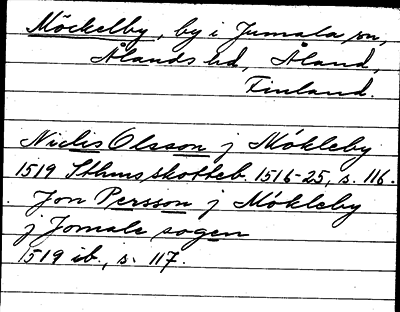 Möckelby, by i Jumala sn,
Ålands hd, Åland,
Finland.
Niclis Olsson j Mökleby
1519 Sthms skotteb. 1516-25, s. 116.
Jon Persson j Mökleby
j Jomale sogen
1519 ib., s. 117.